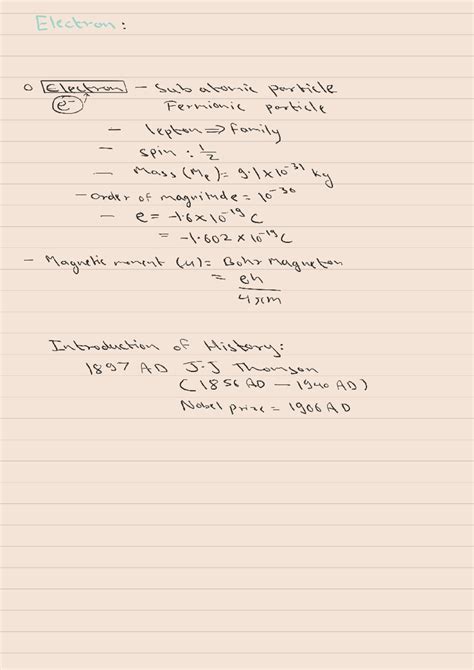 Electron :
o Electron - Sub atomic particle
e- Fermionic particle
- lepton ⇒ Family
- spin : 1/2
- Mass (Me) = 9.1 x 10^-31 kg
- order of magnitude = 10^-30
- e = -1.6 x 10^-19 C
= -1.602 x 10^-19 C
- Magnetic moment (u) = Bohr Magneton
= eh
4πm
Introduction of History:
1897 AD J.J Thomson
(1856 AD - 1940 AD)
Nobel prize = 1906 AD